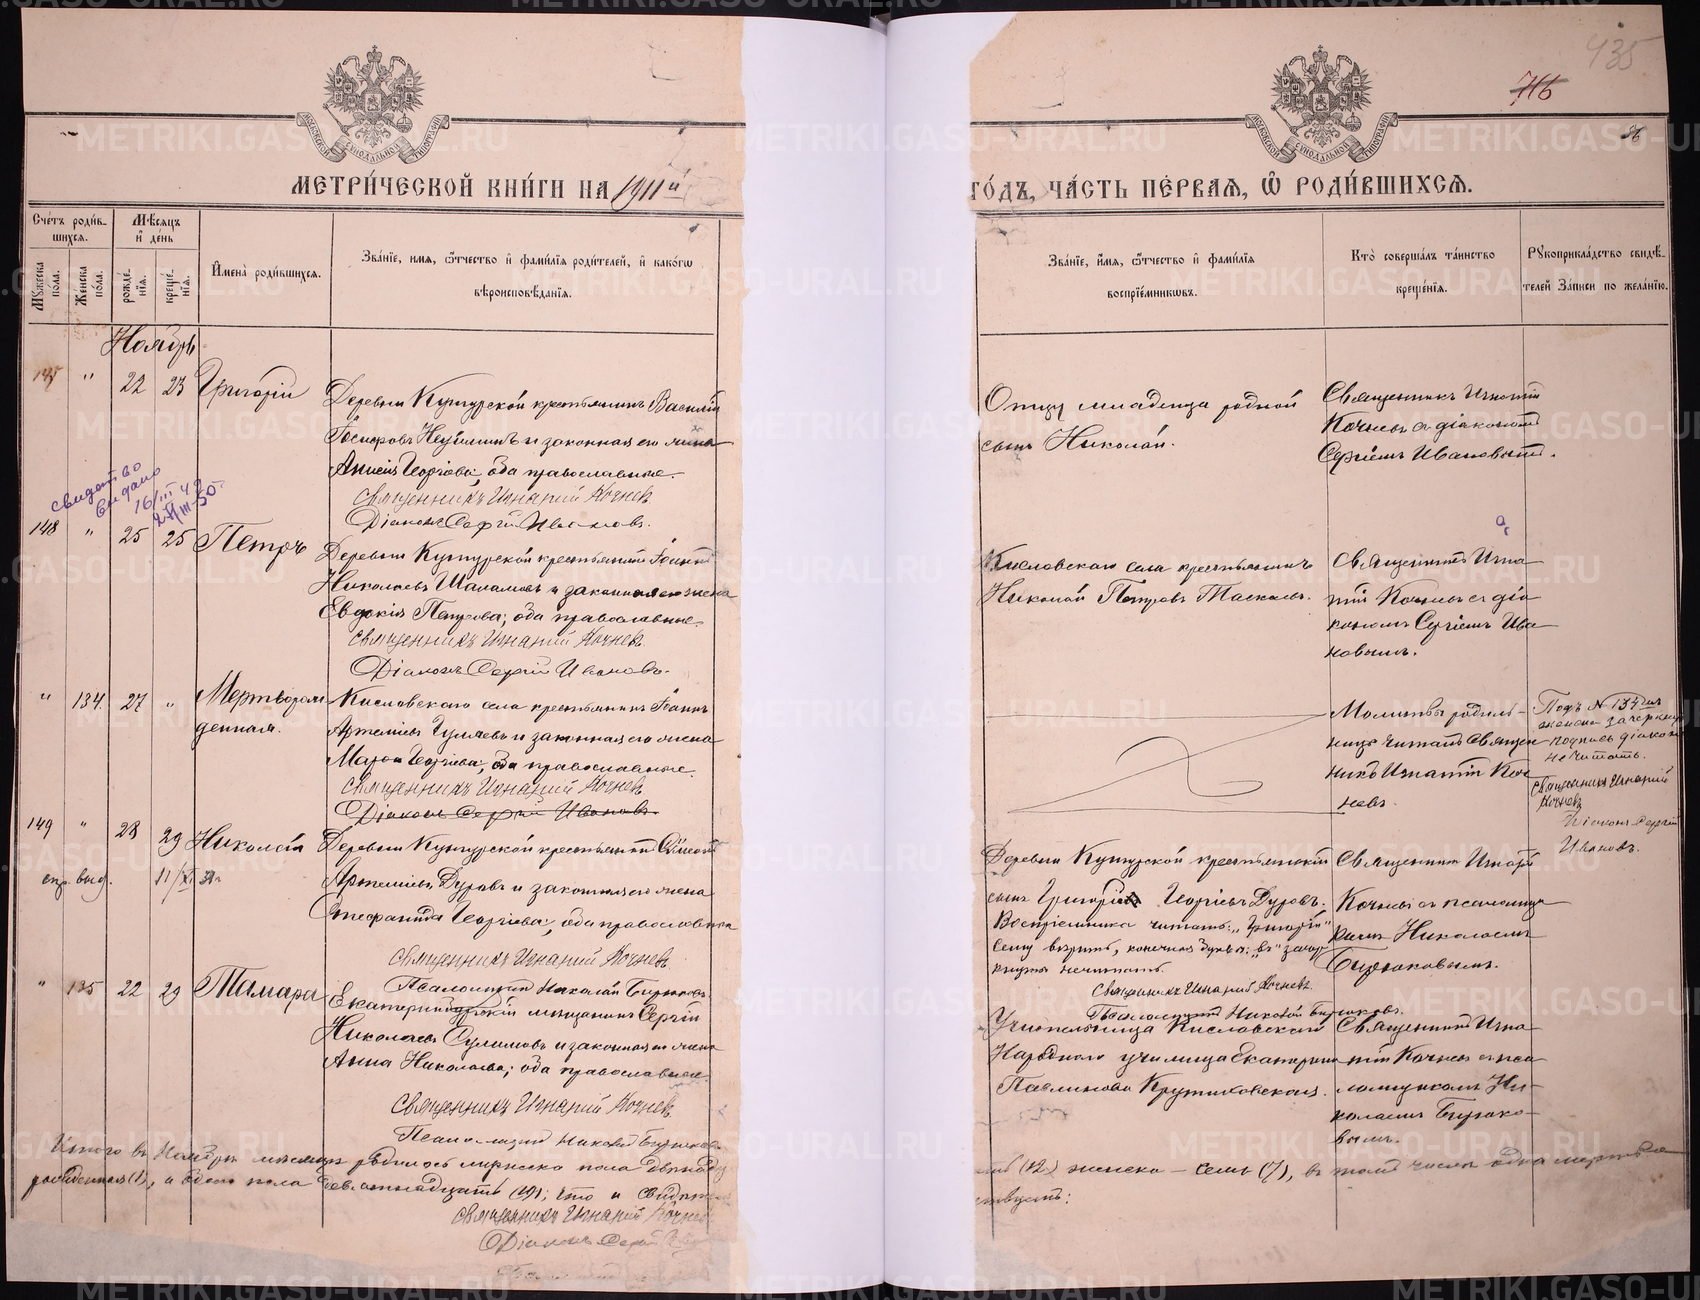 435
716
86
МОСКОВСКОЙ СѴНОДАЛЬНОЙ ТИПОГРАФІИ
МОСКОВСКОЙ СѴНОДАЛЬНОЙ ТИПОГРАФІИ
МЕТРИ́ЧЕСКОЙ КНИ́ГИ НА 1911й
ГО́ДЪ, ЧА́СТЬ ПЕ́РВАЯ, Ѡ РОДИ́ВШИХСЯ.
Сче́тъ роди́в-
шихся.
Мꙋжеска по́ла.
Же́нска по́ла.
Мѣ́сяцъ
и҆ де́нь
рожде́нїя.
креще́нїя.
И҆мена̀ роди́вшихся.
Зва́нїе, и҆мя, ѻ҆́тчество и҆ фами́лїя роди́телей, и҆ како́гѡ
вѣроисповѣ́данїя.
Зва́нїе, и҆́мя, ѻ҆́тчество и҆ фами́лїя
воспрїе́мникѡвъ.
Кто̀ соверша́лъ та́инство
креще́нїя.
Рꙋкоприкла́дство свидѣ́-
телей за́писи по жела́нїю.
Ноябрь
147 " 22 23 Григорій
Деревни Кунгурской крестьянинъ Василій
Іосифовъ и законная его жена
Анисія Георгіева; оба православные.
Священникъ Игнатій Кочневъ
Діаконъ Сергій Ивановъ.
Отцу младенца родной
сынъ Николай.
Священникъ Игнатій
Кочневъ съ діакономъ
Сергіемъ Ивановымъ.
свидетво
выдано
16/III 49
50г.
148 " 25 25 Петръ
Деревни Кунгурской крестьянинъ Іоаннъ
Николаевъ Шаламовъ и законная его жена
Евдокія Петрова; оба православные.
Священникъ Игнатій Кочневъ.
Діаконъ Сергій Ивановъ.
Кисловскаго села крестьянинъ
Николай Петровъ Таскинъ.
Священникъ Игна-
тій Кочневъ съ діа-
кономъ Сергіемъ Ива-
новымъ.
" 134. 27 " Мертворож-
денная.
Кисловскаго села крестьянинъ Іоаннъ
Артеміевъ Гуляевъ и законная его жена
Марѳа Георгіева; оба православные.
Священникъ Игнатій Кочневъ
Діаконъ Сергій Ивановъ.
Молитвы родиль-
ницѣ читалъ Священ-
никъ Игнатій Коч-
невъ.
Подъ № 134мъ
женска зачеркну
подпись діакона
не читать.
Священникъ Игнатій
Кочневъ
Діаконъ Сергій
Ивановъ.
149 " 28 29 Николай
спр. выд. 11/XI
Деревни Кунгурской крестьянинъ
Артеміевъ Дуровъ и законная его жена
Стефанида Георгіева; оба православные
Священникъ Игнатій Кочневъ
Псаломщикъ Николай Бирюковъ
Деревни Кунгурской крестьянскій
сынъ Григорій Георгіевъ Дуровъ.
Воспріемника читать: „Григорій"
сему вѣрить, конечная буква: „въ" зачер-
кнута не читать.
Священникъ Игнатій Кочневъ.
Псаломщикъ Николай Бирюковъ.
Священникъ Игнатій
Кочневъ съ псаломщи-
комъ Николаемъ
Бирюковымъ.
" 135 22 29 Тамара
Екатеринбургскій мѣщанинъ Сергій
Николаевъ Сулимовъ и законная его жена
Анна Николаева; оба православные.
Священникъ Игнатій Кочневъ
Псаломщикъ Николай Бирюковъ
Учительница Кисловскаго
Народнаго училища Екатерина
Павлинова Крутиховская.
Священникъ Игна-
тій Кочневъ съ пса-
ломщикомъ Ни-
колаемъ Бирюко-
вымъ.
Итого въ Ноябрѣ мѣсяцѣ родилось мужеска пола двѣнад-
цать (12) женска — семь (7), въ томъ числѣ одна мертво-
рожденная (1), а обоего пола девятнадцать (19); что и свидѣтель-
ствуютъ:
Священникъ Игнатій Кочневъ
Діаконъ Сергій